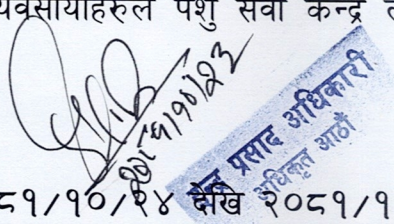 यवसायीहरुले पशु सेवा केन्द्र
२०८१/१०/२३
प्रसाद अधिकारी
अधिकृत आठौं
८१/१०/२४ देखि २०८१/१